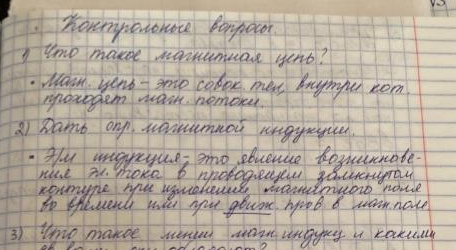 Контрольные вопросы.
1) Что такое магнитная цепь?
• Магн. цепь – это совок. тел, внутри кот.
проходят магн. потоки.
2) Дать опр. магнитной индукции.
• Э/м индукция – это явление возникнове-
ния эл. тока в проводящем замкнутом
контуре при изменении магнитного поля
во времени или при движ. пров. в магн. поле
3) Что такое линии магн. индукц и какими